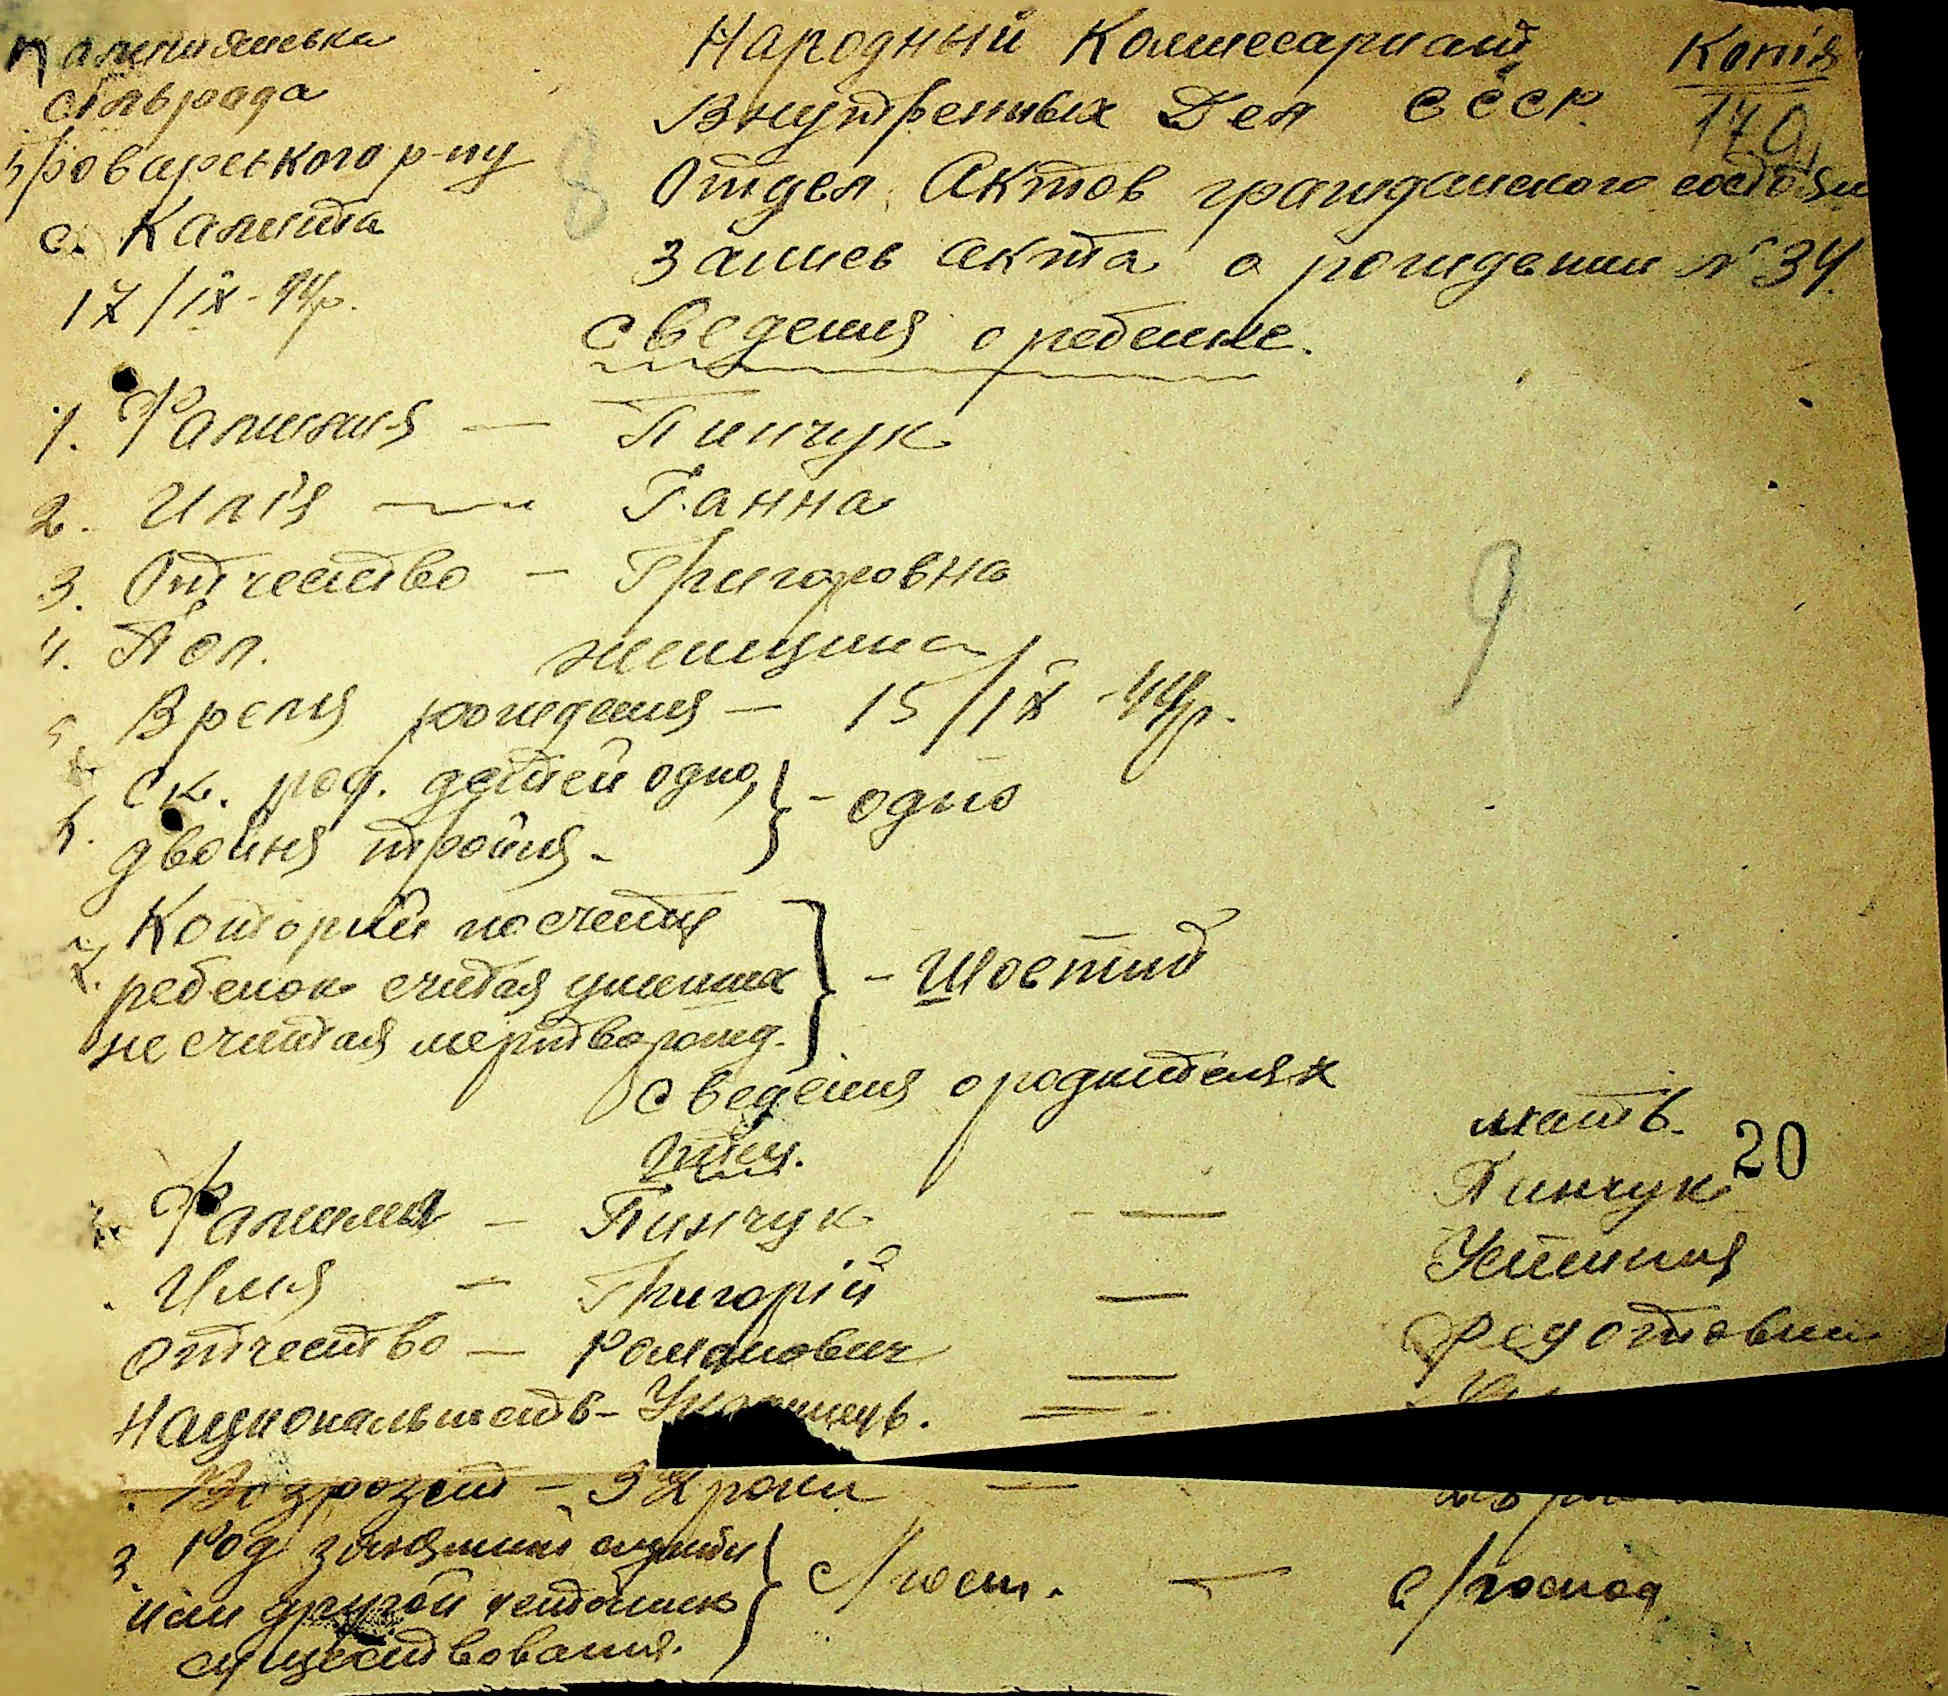 Калитянська
сільрада
Броварського р-ну
с. Калита
17/IX-44р.
Копія
Народный Комиссариат
Внутренных Дел СССР.
170
8
Отдел Актов гражданского состоян
Запись акта о рождении № 34
Сведения о ребенке.
1. Фамилия — Пинчук
2. Имя — Ганна
3. Отчество — Григоровна
4. Пол. женщина
9
5. Время рождения — 15/IX-44р.
6. Ск. род. детей одно,
двойня тройня - } - одно
7. Который по счету
ребенок считая умерших } - Шостий
не считая мертворожд.
Сведения о родителях
Отец. мать.
20
Фамилия — Пинчук — Пинчук
Имя — Григорій — Устиния
Отчество — Романович — Федотовна
Национальность - Украинець.
Возрозст — 37 роки —
3. Род занятий службы
или другой источник } с/госп. — с/господ
существования.